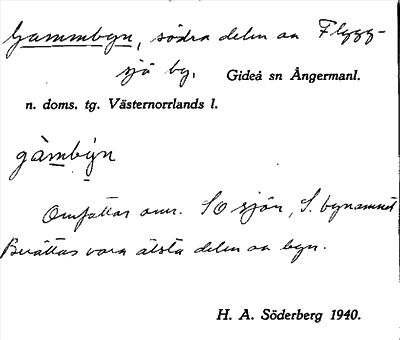 Gammbyn, södra delen av Flygg-
sjö by. Gideå sn Ångermanl.
n. doms. tg. Västernorrlands l.
gàmbýn
Omfattar omr. SO sjön, S. bynamnet
Berättas vara älsta delen av byn.
H. A. Söderberg 1940.